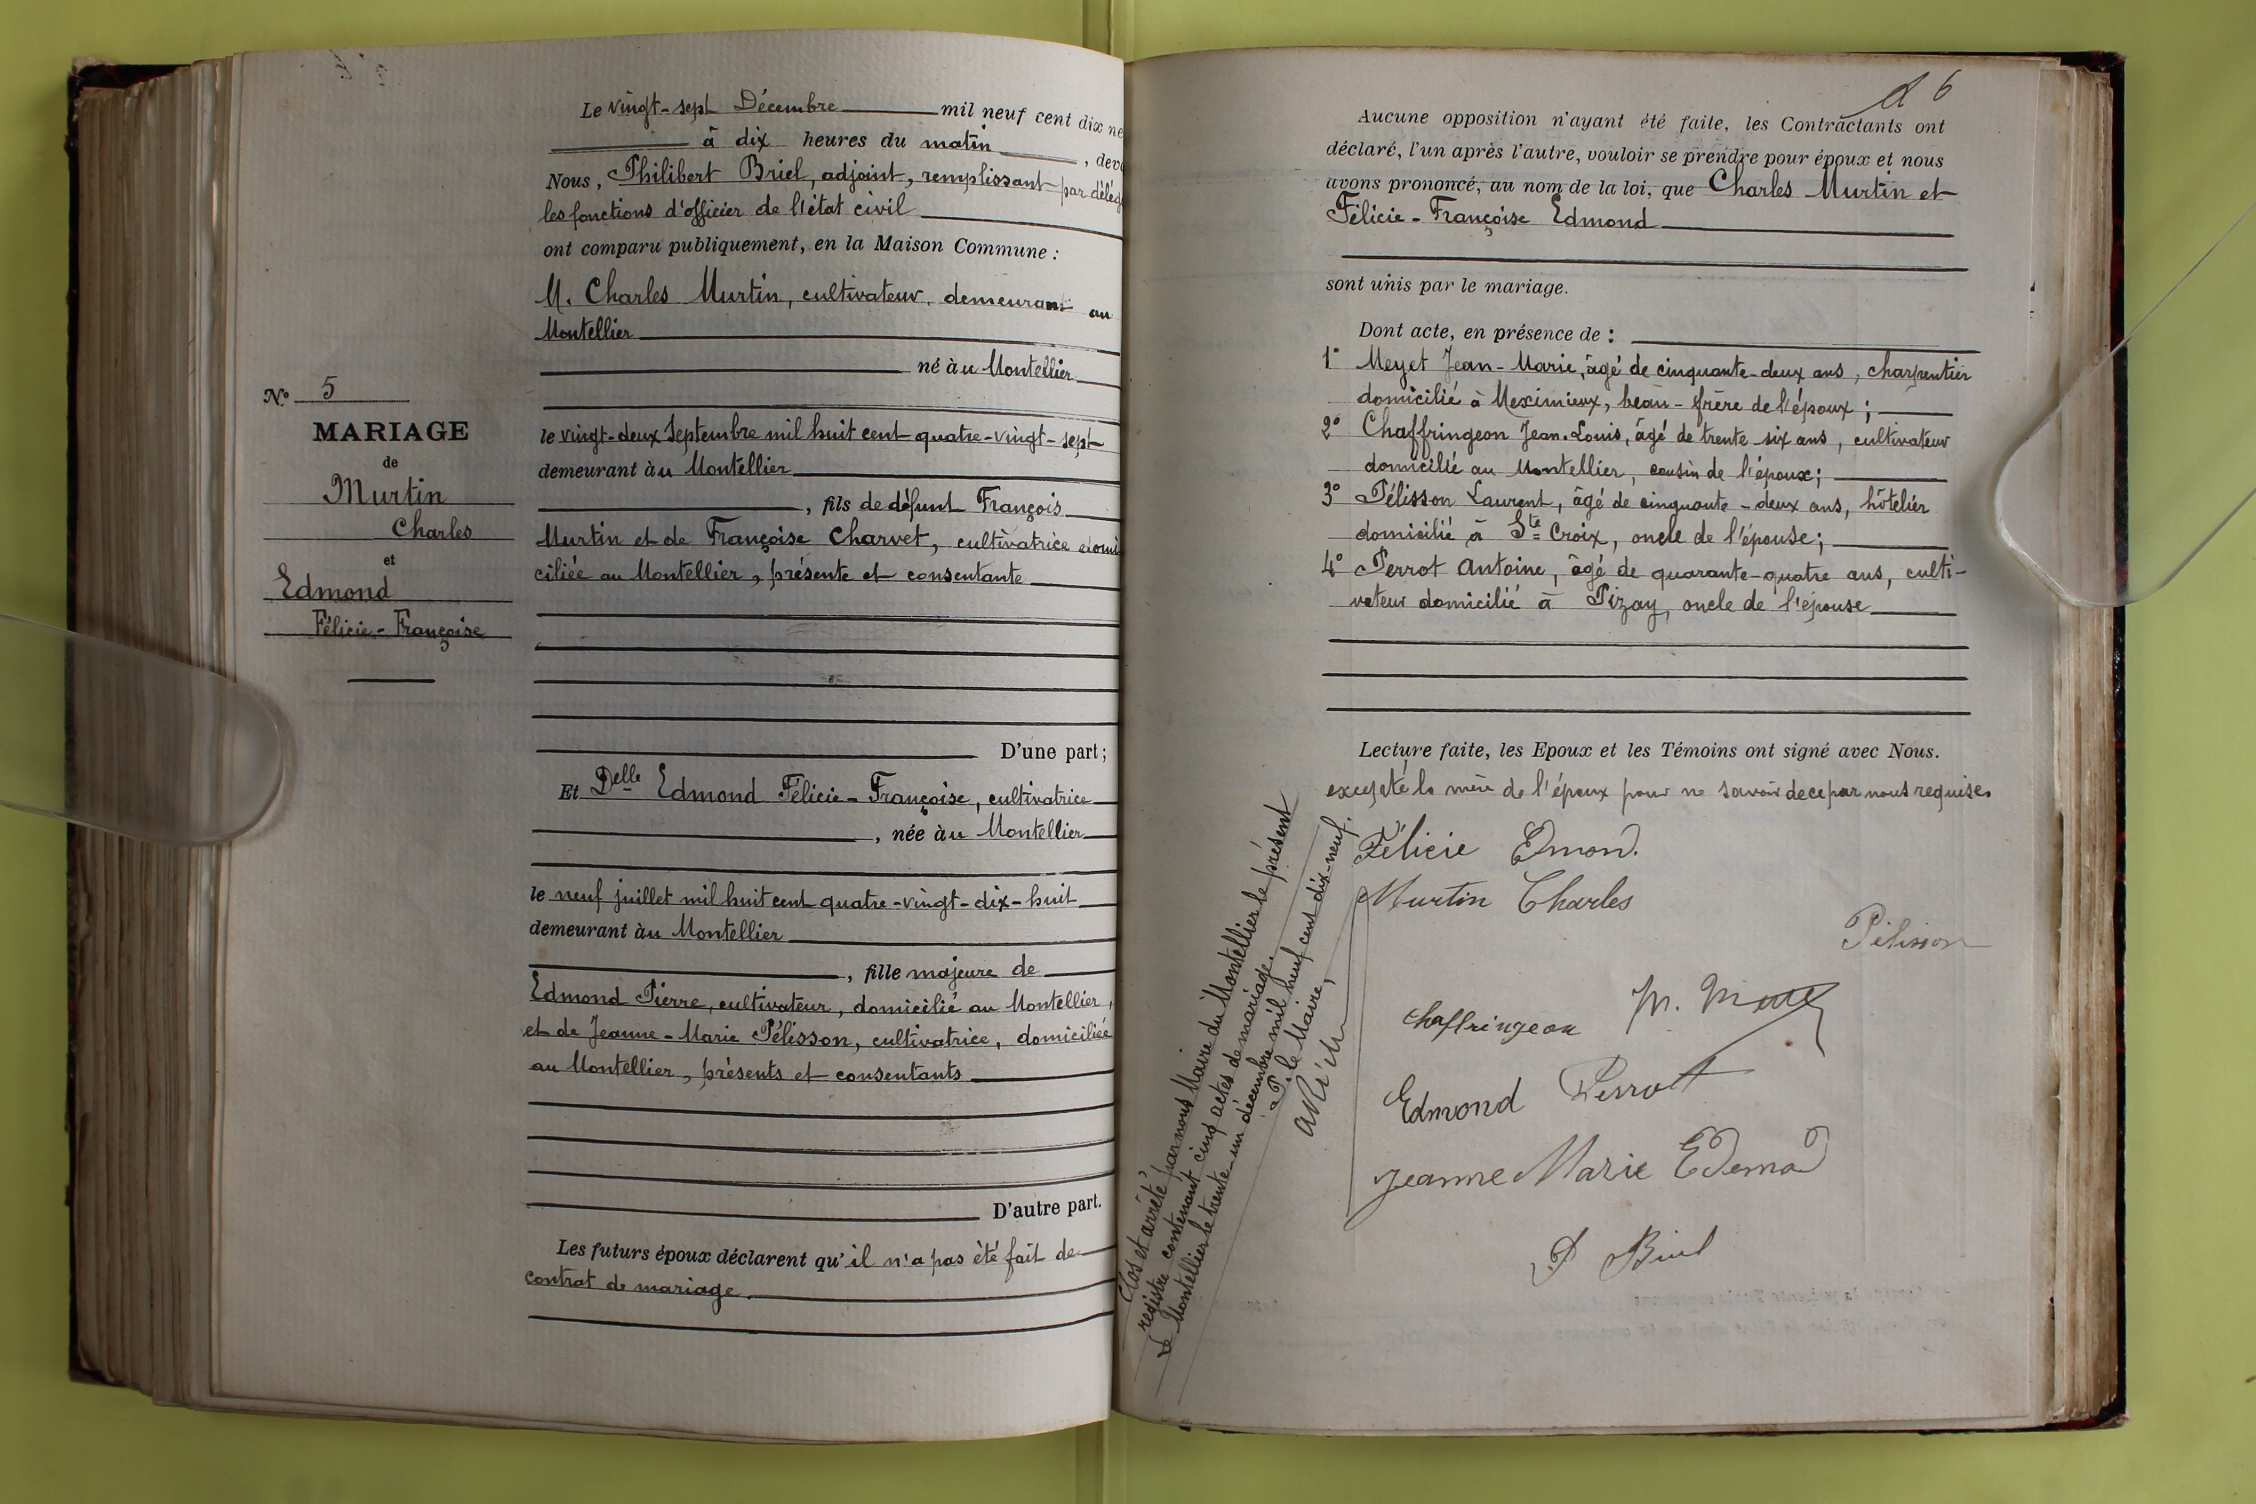 N.° 5
MARIAGE
de
Murtin
Charles
et
Edmond
Félicie-Françoise
Le vingt-sept Décembre mil neuf cent dix ne
à dix heures du matin, deva
Nous, Philibert Briel, adjoint, remplissant par délég
les fonctions d'officier de l'état civil
ont comparu publiquement, en la Maison Commune :
M. Charles Murtin, cultivateur, demeurant au
Montellier
né à u Montellier
le vingt-deux Septembre mil huit cent quatre-vingt-sept
demeurant à u Montellier
, fils de défunt François
Murtin et de Françoise Charvet, cultivatrice domi
ciliée au Montellier, présente et consentante
D'une part ;
Et Delle Edmond Félicie-Françoise, cultivatrice
, née à u Montellier
le neuf juillet mil huit cent quatre-vingt-dix-huit
demeurant à u Montellier
, fille majeure de
Edmond Pierre, cultivateur, domicilié au Montellier,
et de Jeanne-Marie Pélisson, cultivatrice, domiciliée
au Montellier, présents et consentants
D'autre part.
Les futurs époux déclarent qu'il n'a pas été fait de
contrat de mariage.
6
Aucune opposition n'ayant été faite, les Contractants ont
déclaré, l'un après l'autre, vouloir se prendre pour époux et nous
avons prononcé, au nom de la loi, que Charles Murtin et
Félicie-Françoise Edmond
sont unis par le mariage.
Dont acte, en présence de :
1° Meyet Jean-Marie, âgé de cinquante-deux ans, charpentier
domicilié à Meximieux, beau-frère de l'époux ;
2° Chaffringeon Jean-Louis, âgé de trente six ans, cultivateur
domicilié au Montellier, cousin de l'époux ;
3° Pélisson Laurent, âgé de cinquante-deux ans, hôtelier
domicilié à Ste Croix, oncle de l'épouse ;
4° Perrot Antoine, âgé de quarante-quatre ans, culti-
vateur domicilié à Pizay, oncle de l'épouse
Lecture faite, les Epoux et les Témoins ont signé avec Nous.
excepté la mère de l'époux pour ne savoir de ce par nous requise.
Félicie Emond.
Murtin Charles
Pélisson
Chaffringeon
M.
Edmond Perrot
Jeanne Marie Edemond
P Briel
Clos et arrêté par nous Maire du Montellier le présent
registre contenant cinq actes de mariage.
Le Montellier le trente-un décembre mil neuf cent dix-neuf.
P. le Maire,